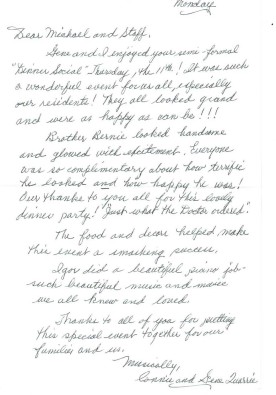 Monday
Dear Michael and Staff,
Gene and I enjoyed your semi-formal
"Dinner Social" Thursday, the 11th! It was such
a wonderful event for us all, especially
our residents! They all looked grand
and were as happy as can be!!!
Brother Bernie looked handsome
and glowed with excitement. Everyone
was so complimentary about how terrific
he looked and how happy he was!
Our thanks to you all for this lovely
dinner party! "Just what the Doctor ordered".
The food and decor helped make
this event a smashing success.
Igor did a beautiful piano job -
such beautiful music and music
we all know and loved.
Thanks to all of you for putting
this special event together for our
families and us.
Musically,
Connie and Gene